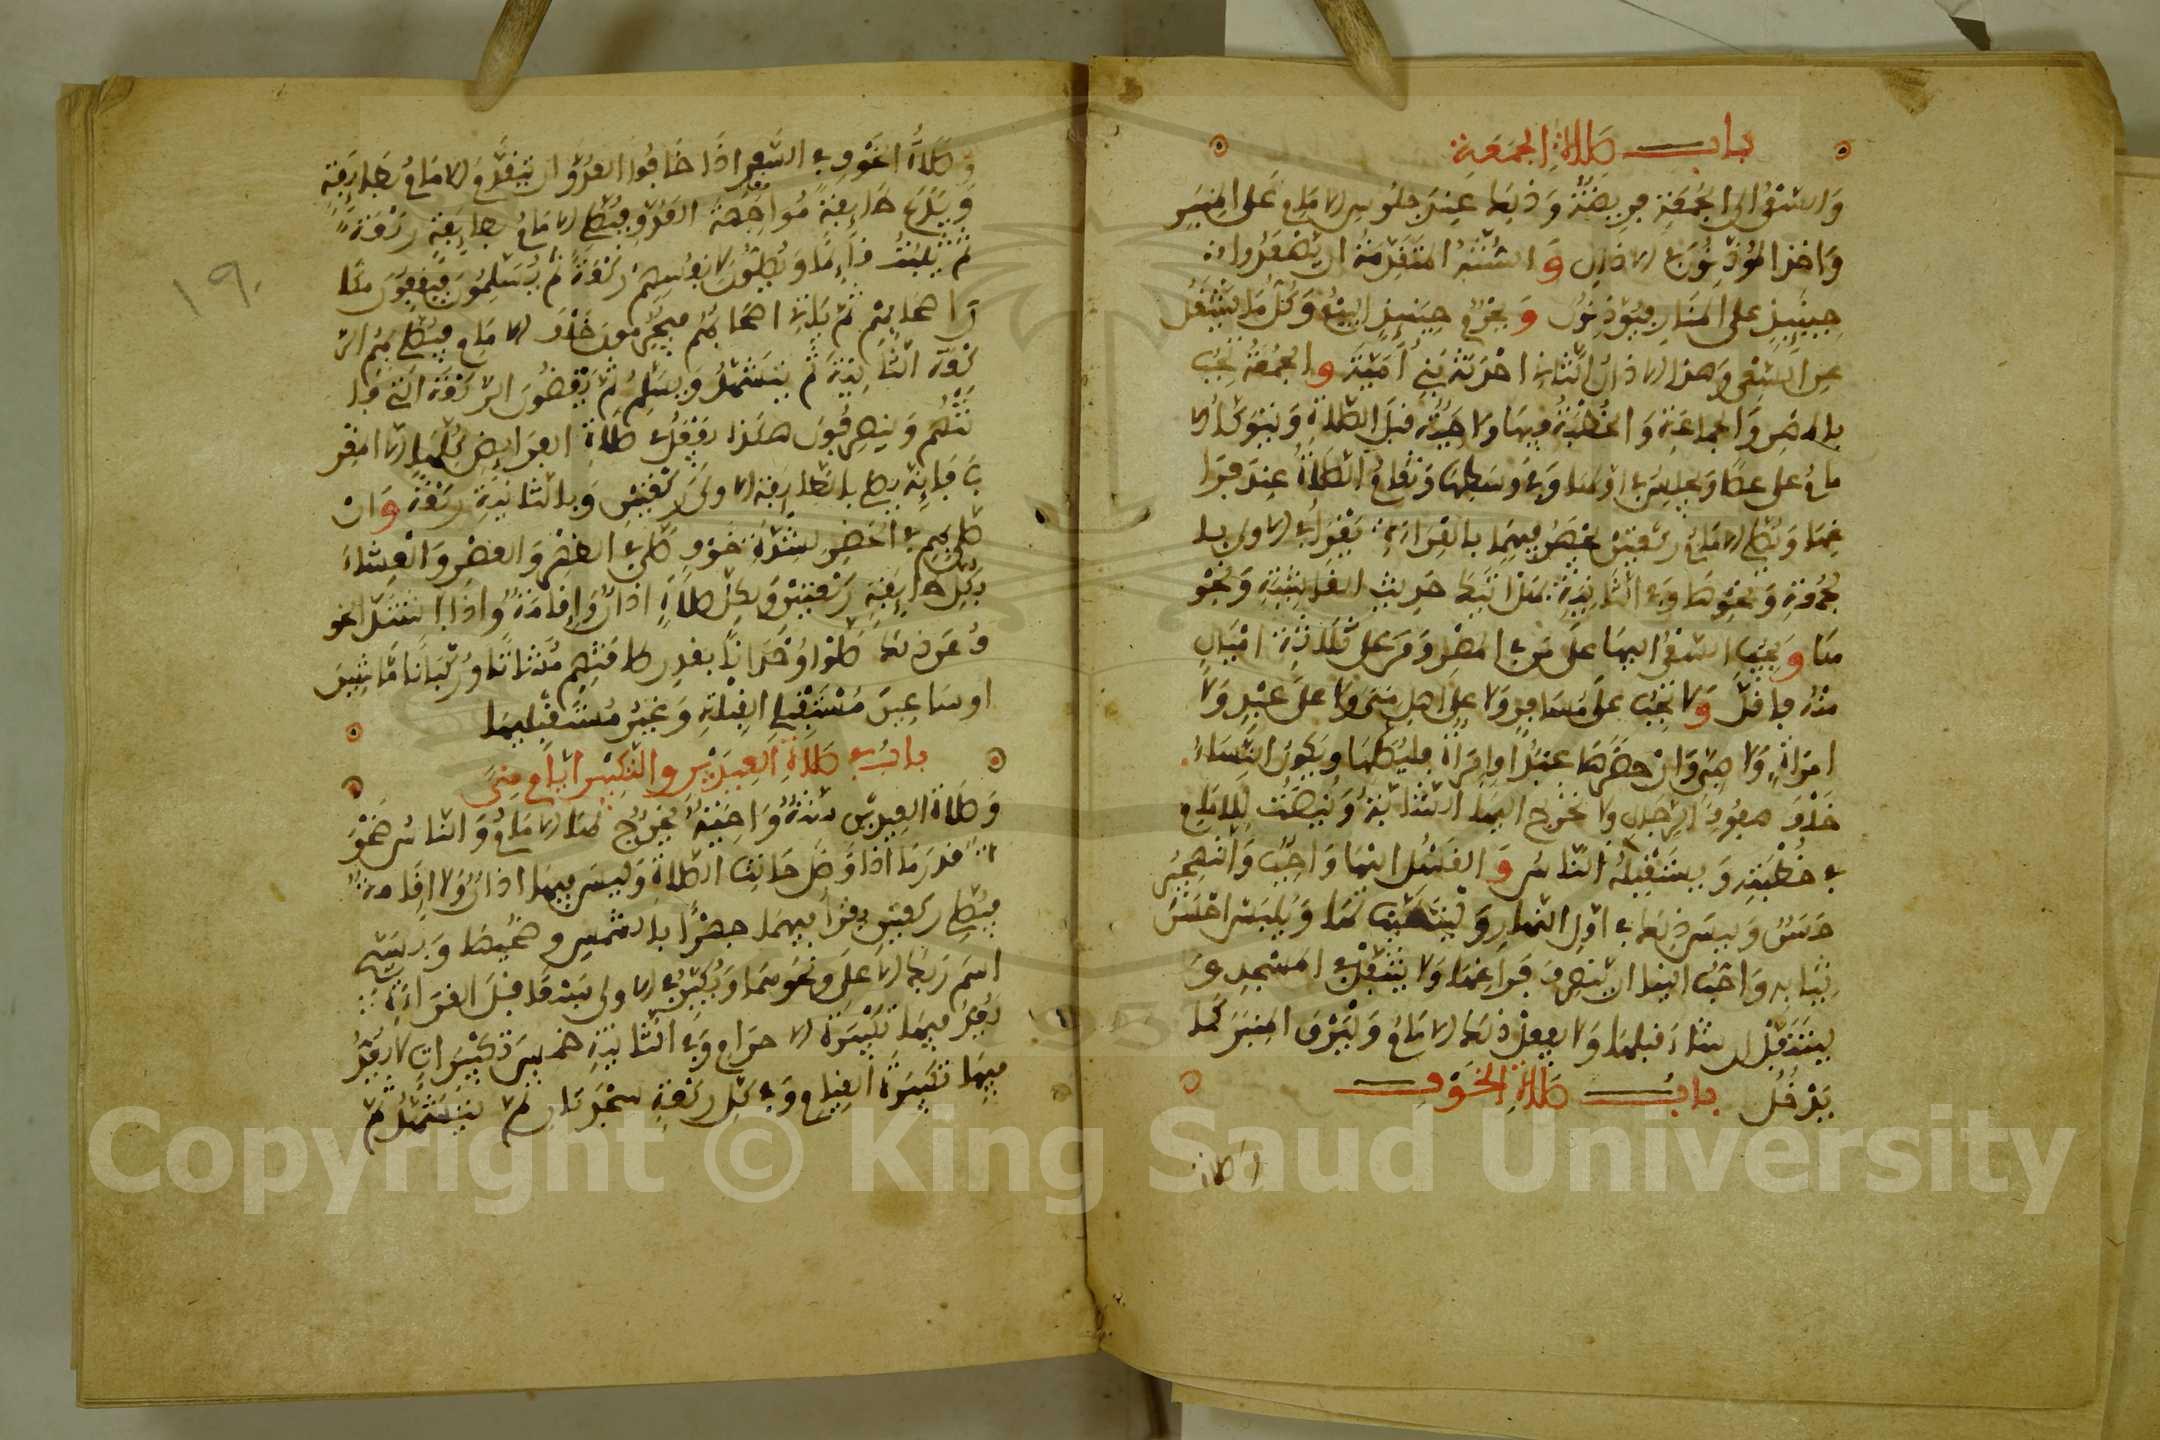 باب صلاة الجمعة
والسعي الى الجمعة فريضة وذلك عند جلوس الامام على المنبر
واخذ المؤذنون في الاذان والسنة المتقدمة ان يصعدوا
حينيذ على المنار فيؤذنون ويحرم حينيذ البيع وكل ما يشغل
عن السعي وهذا الاذان الثاني احدثه بنو امية والجمعة تجب
بالمصر والجماعة والخطبة فيها واجبة قبل الصلاة ويتوكأ الا
مام على عصا ويجلس في اولها وفي وسطها وتقام الصلاة عند فرا
غها ويصلي الامام ركعتين يجهر فيهما بالقراءة يقرأ في الاولى بالـ
جمعة ونحوها وفي الثانية بهل اتيك حديث الغاشية ونحو
ها ويجب السعي اليها على من في المصر ومن على ثلاثة اميال
منه فاقل ولا تجب على مسافر ولا على اهل منى ولا على عبد ولا
امرأة ولا صبي وان حضرها عبد او امرأة فليصلها ويكون النساء
خلف صفوف الرجال ولا تخرج اليها الشابة وينصت للامام
في خطبته ويستقبله الناس والغسل لها واجب والتهجير
حسن وليس ذلك في اول النهار وليتطيب لها ويلبس احسن
ثيابه واحب الينا ان ينصرف بعد فراغها ولا يتنفل في المسجد و
ليتنفل ان شاء قبلها ولا يفعل ذلك الامام وليرق المنبر كما
يدخل باب صلاة الخوف
وصلاة
وصلاة الخوف في السفر اذا خافوا العدو ان يتقدم الامام بطايفة
ويدع طايفة مواجهة العدو فيصلي الامام بطايفة ركعة
ثم يثبت قايما ويصلون لانفسهم ركعة ثم يسلمون فيقفون مكا
ن اصحابهم ثم ياتي اصحابهم فيحرمون خلف الامام فيصلي بهم الر
كعة الثانية ثم يتشهد ويسلم ثم يقضون الركعة التي فا
تتهم وينصرفون هكذا يفعل في صلاة الفرايض كلها الا المغر
ب فانه يصلي بالطايفة الاولى ركعتين وبالثانية ركعة وان
صلى بهم في الحضر لشدة خوف صلى في الظهر والعصر والعشاء
بكل طايفة ركعتين ولكل صلاة اذان واقامة واذا اشتد الخو
ف عن ذلك صلوا وحدانا بقدر طاقتهم مشاتا وركبانا ماشين
او ساعين مستقبلي القبلة وغير مستقبليها
باب في صلاة العيدين والتكبير ايام منى
وصلاة العيدين سنة واجبة يخرج لها الامام والناس ضحوة
قدر ما اذا وصل حانت الصلاة وليس فيها اذان ولا اقامة
فيصلي ركعتين يقرأ فيهما جهرا بالشمس وضحيها وبسبح
اسم ربك الاعلى ونحوهما ويكبر في الاولى سبعا قبل القراءة
يعد فيها تكبيرة الاحرام وفي الثانية خمس تكبيرات لا يعد
فيها تكبيرة القيام وفي كل ركعة سجدتان ثم يتشهد ثم
١٩